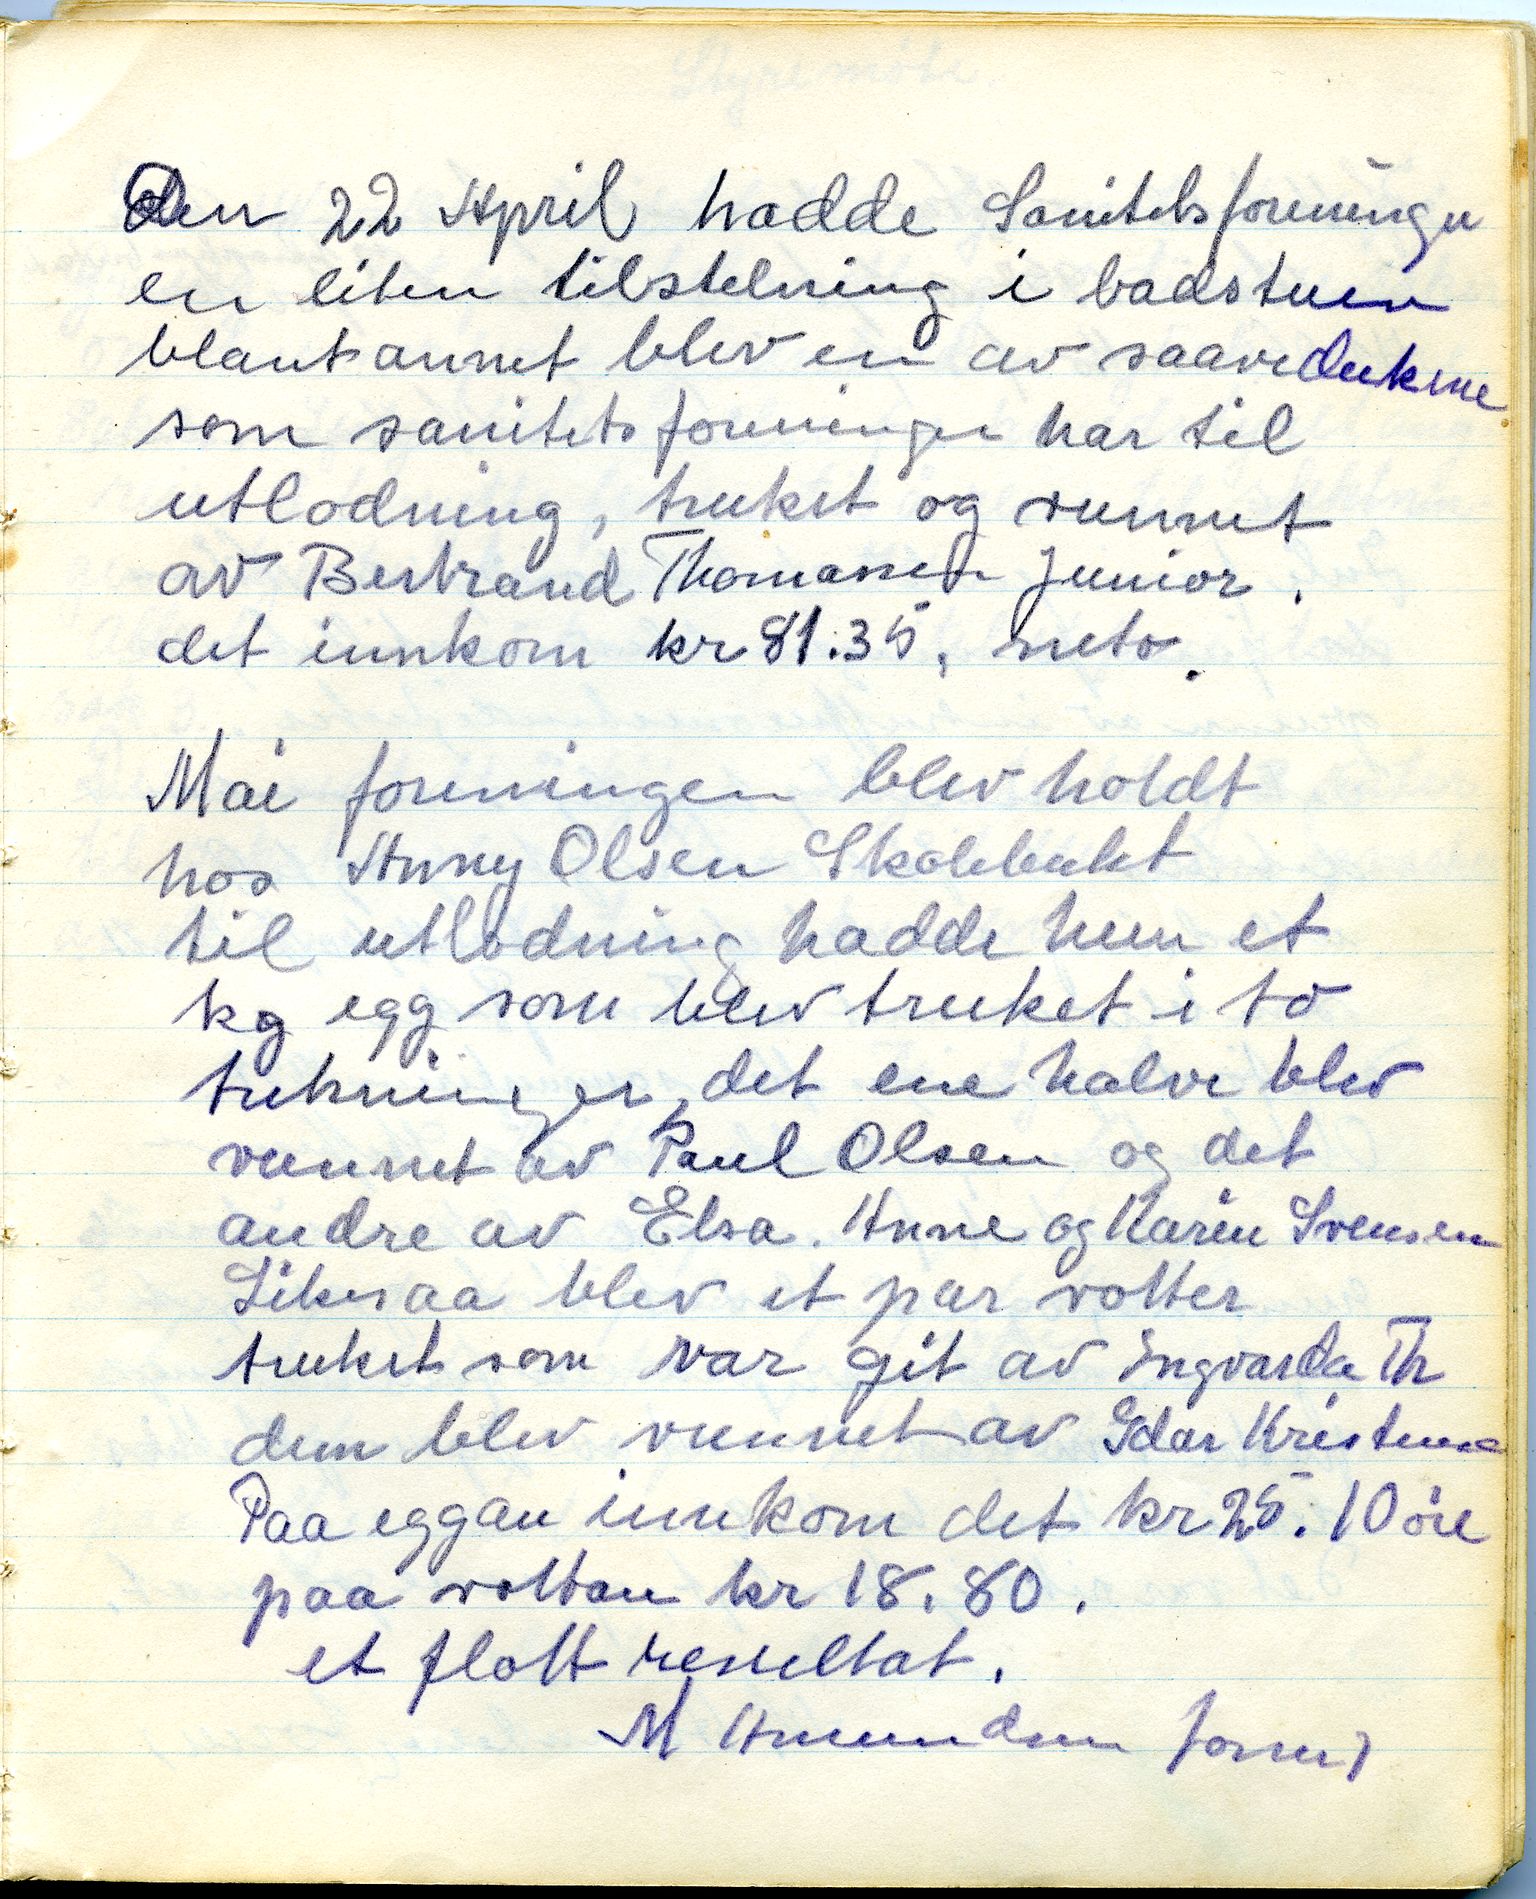 Styremöte.
Den 22 April hadde Sanitetsforeningen
en liten tilstelning i badstuen
blant annet blev en av saavedukene
som sanitetsforeningen har til
utlodning, truket og vunnet
av Bertrand Thomassen Junior.
det innkom kr 81.35, neto.
Mai foreningen blev holdt
hos Anny Olsen Skolebukt
til utlodning hadde hun et
kg egg som blev truket i to
trekninger, det ene halve blev
vunnet av Paul Olsen og det
andre av Elsa. Anne og Karin Svensen
Likesaa blev et par votter
truket som var git av Ingvarda Th
dem blev vunnet av Edar Kristense
Paa eggan innkom det kr 25.10 öre
paa vottan kr 18.80.
et flott resultat.
M Amundsen